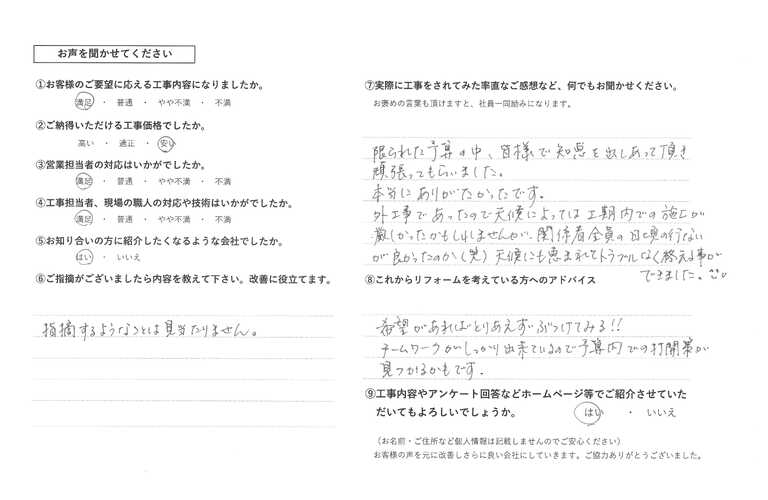 お声を聞かせてください
①お客様のご要望に応える工事内容になりましたか。
満足 ・ 普通 ・ やや不満 ・ 不満
②ご納得いただける工事価格でしたか。
高い ・ 適正 ・ 安い
③営業担当者の対応はいかがでしたか。
満足 ・ 普通 ・ やや不満 ・ 不満
④工事担当者、現場の職人の対応や技術はいかがでしたか。
満足 ・ 普通 ・ やや不満 ・ 不満
⑤お知り合いの方に紹介したくなるような会社でしたか。
はい ・ いいえ
⑥ご指摘がございましたら内容を教えて下さい。改善に役立てます。
指摘するようなことは見当たりません。
⑦実際に工事をされてみた率直なご感想など、何でもお聞かせください。
お褒めの言葉も頂けますと、社員一同励みになります。
限られた予算の中、皆様で知恵を出しあって頂き
頑張ってもらいました。
本当にありがたかったです。
外工事であったので天候によっては工期内での施工が
厳しかったかもしれませんが、関係者全員の日頃の行ない
が良かったのか(笑)天候にも恵まれてトラブルなく終える事が
できました。
⑧これからリフォームを考えている方へのアドバイス
希望があればとりあえずぶつけてみる!!
チームワークがしっかり出来ているので予算内での打開策が
見つかるかもです。
⑨工事内容やアンケート回答などホームページ等でご紹介させていた
だいてもよろしいでしょうか。 はい ・ いいえ
（お名前・ご住所など個人情報は記載しませんのでご安心ください）
お客様の声を元に改善しさらに良い会社にしていきます。ご協力ありがとうございました。